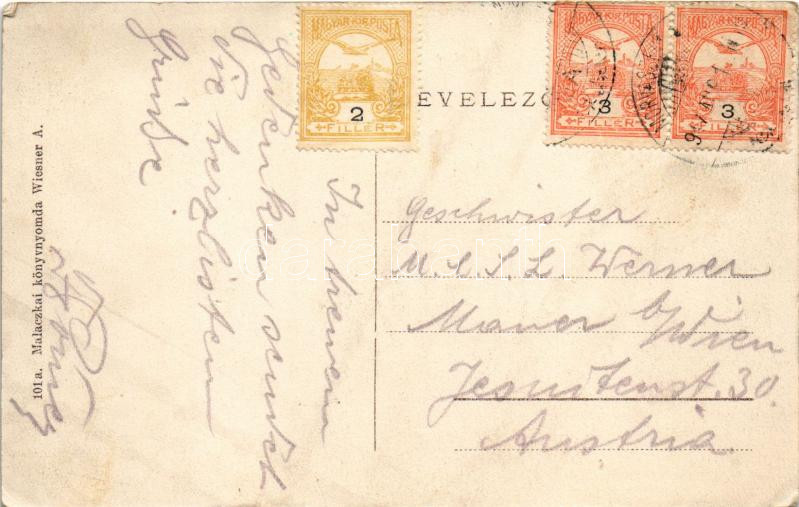 MAGYAR KIR. POSTA
2
FILLÉR
MAGYAR KIR. POSTA
3
FILLÉR
MAGYAR KIR. POSTA
3
FILLÉR
LEVELEZŐ
Geschwister
M. e. S. L. Werner
Mauer b/Wien
Jesuitenst. 30.
Austria
In treuem
Gedenken sendet
die herzlisten
Grüsse
101 a. Malaczkai könyvnyomda Wiesner A.
darabanth